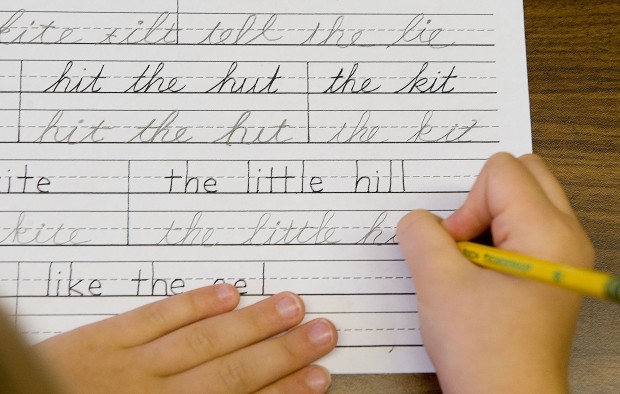 kite tilt tell the lie
hit the hut the kit
hit the hut the kit
ite the little hill
kite the little h
like the eel
TICONDEROGA